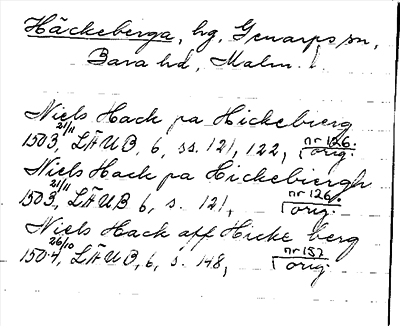 Häckeberga, hg, Genarps sn,
Bara hd, Malm. l.
Niels Hack pa Hickebierg
1503 21/11, LÄUB, 6, ss. 121, 122, nr 126. orig.
Niels Hack pa Hickebiergh
1503 21/11, LÄUB 6, s. 121, nr 126. orig.
Niels Hack aff Hicke berg
1504 26/10, LÄUB, 6, s. 148, nr 157 orig.